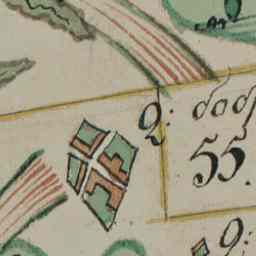 Q: dod
55.
Q: